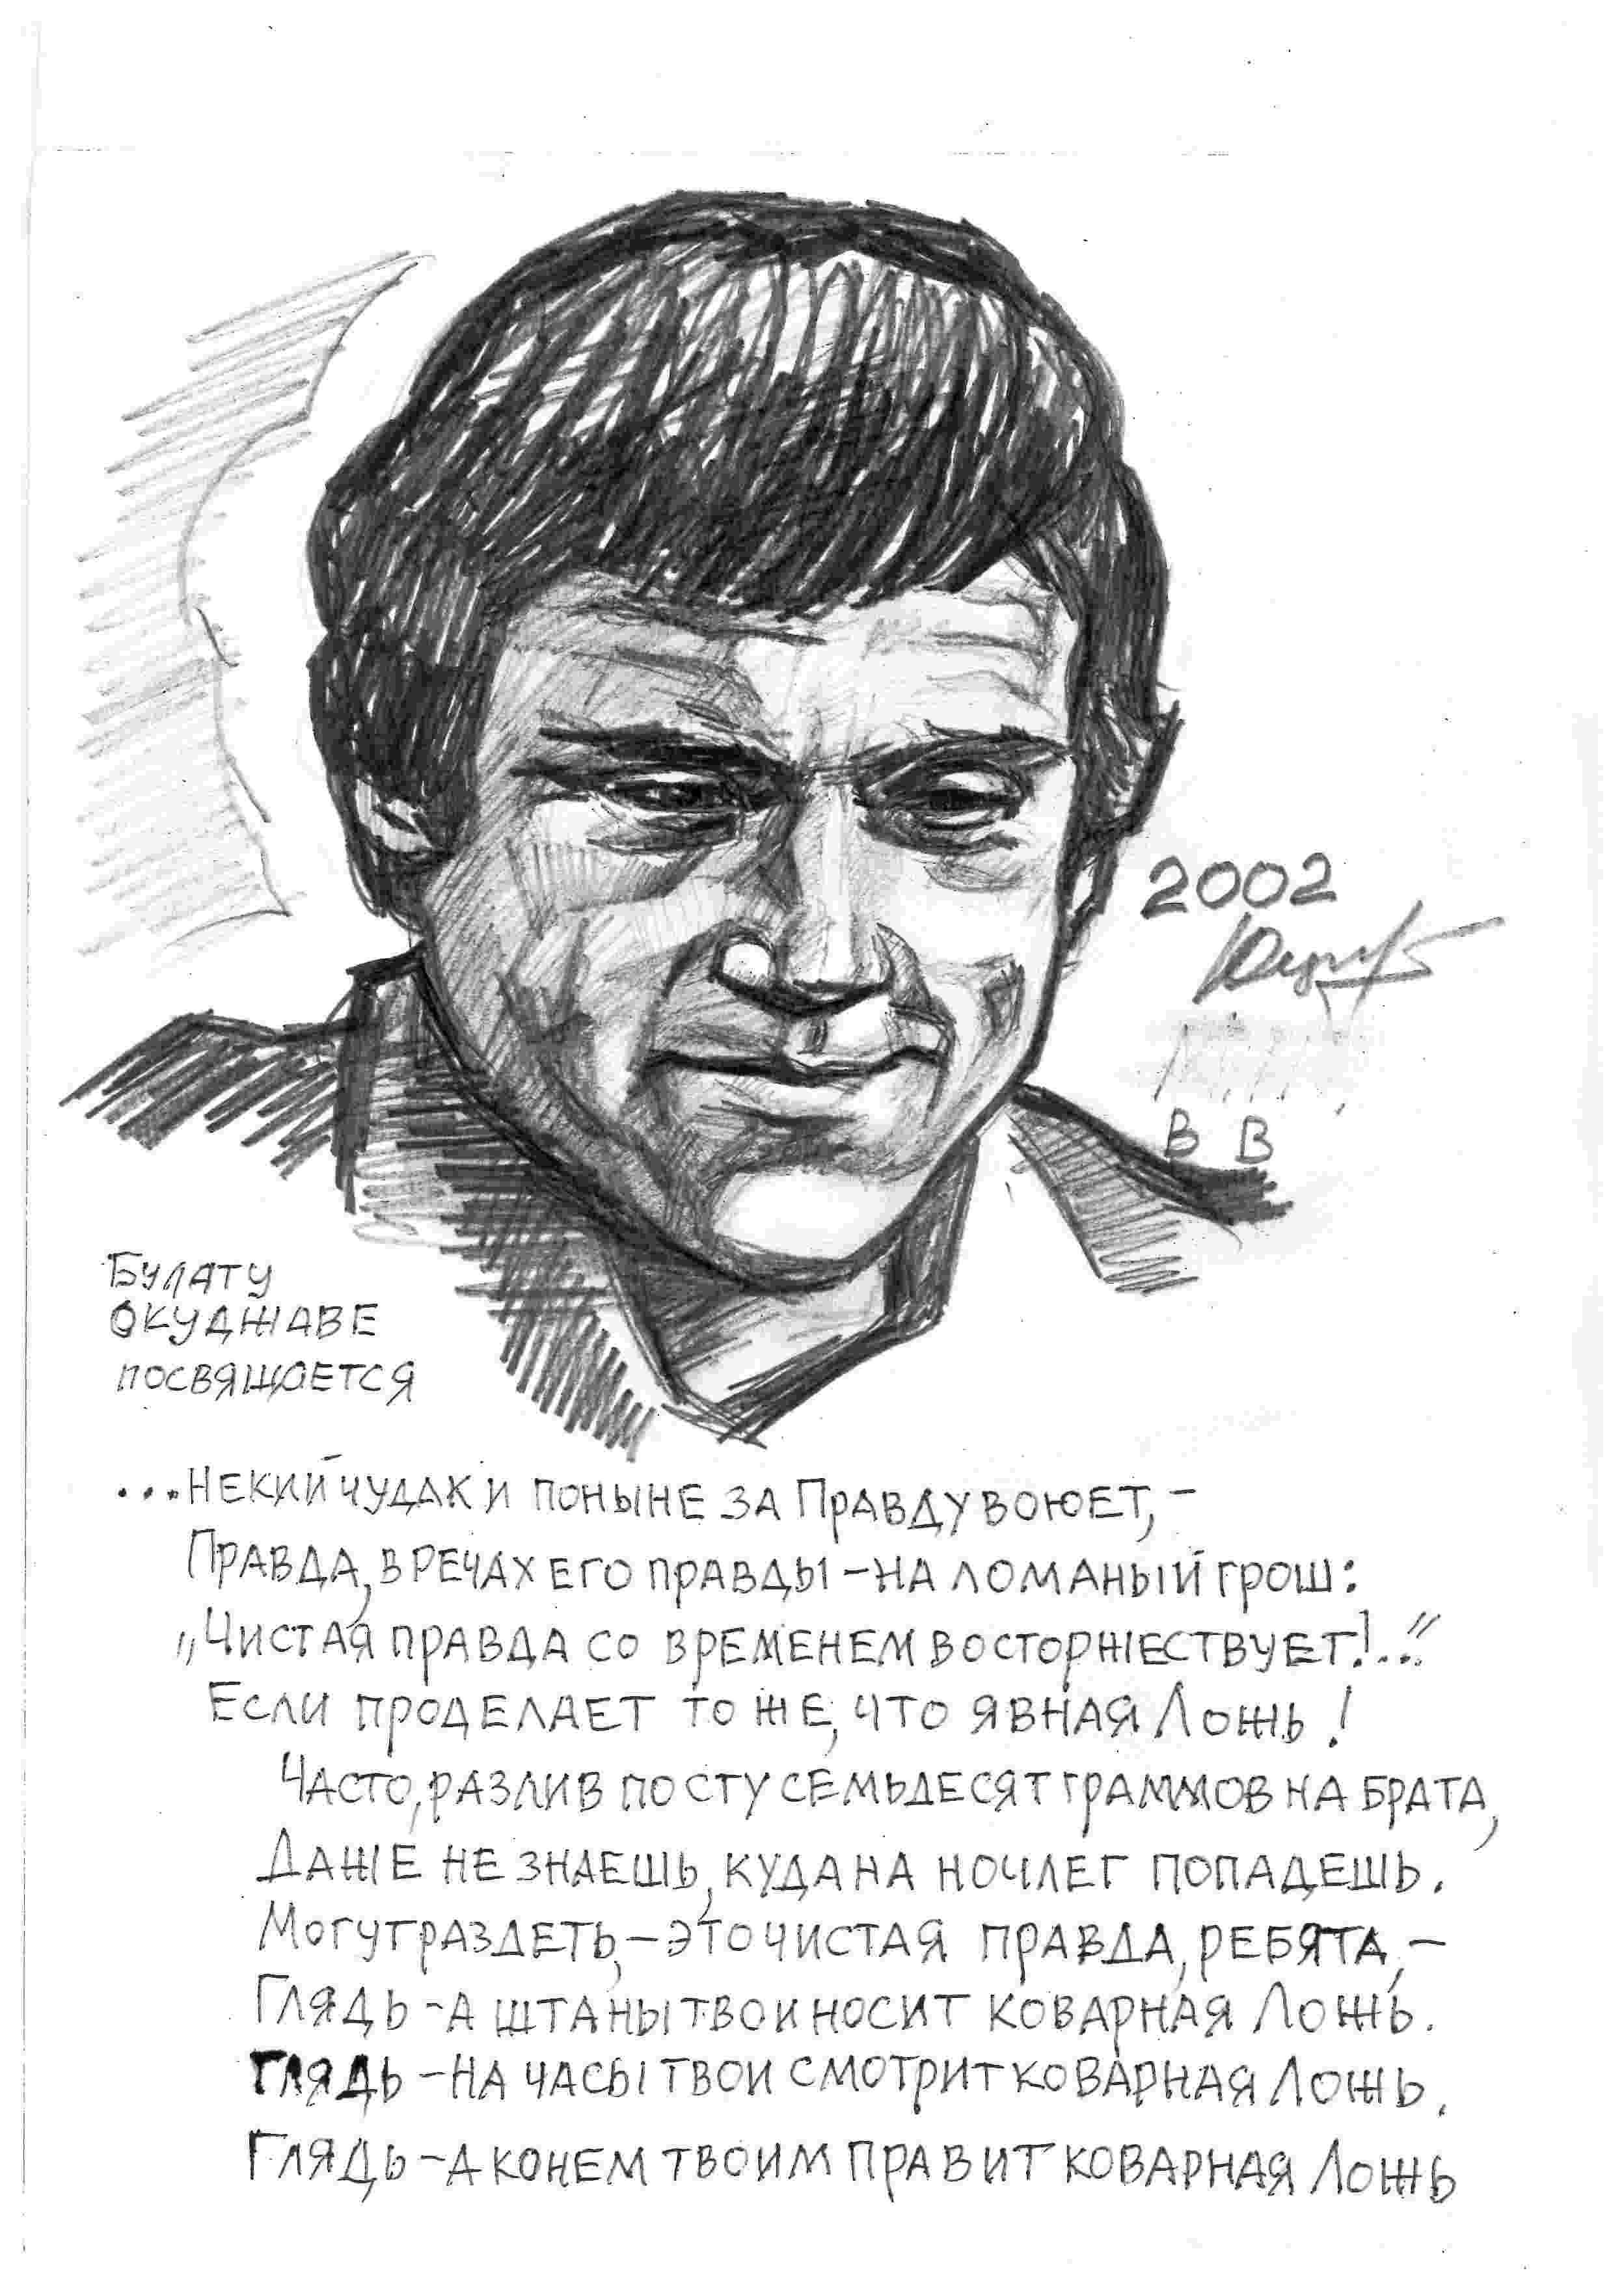 2002
В В
БУЛАТУ
ОКУДЖАВЕ
ПОСВЯЩАЕТСЯ
...НЕКИЙ ЧУДАК И ПОНЫНЕ ЗА ПРАВДУ ВОЮЕТ,-
ПРАВДА, В РЕЧАХ ЕГО ПРАВДЫ - НА ЛОМАНЫЙ ГРОШ:
„ЧИСТАЯ ПРАВДА СО ВРЕМЕНЕМ ВОСТОРЖЕСТВУЕТ!.."
ЕСЛИ ПРОДЕЛАЕТ ТО ЖЕ, ЧТО ЯВНАЯ ЛОЖЬ!
ЧАСТО, РАЗЛИВ ПО СТУ СЕМЬДЕСЯТ ГРАММОВ НА БРАТА,
ДАЖЕ НЕ ЗНАЕШЬ, КУДА НА НОЧЛЕГ ПОПАДЕШЬ.
МОГУТ РАЗДЕТЬ, - ЭТО ЧИСТАЯ ПРАВДА, РЕБЯТА,-
ГЛЯДЬ - А ШТАНЫ ТВОИ НОСИТ КОВАРНАЯ ЛОЖЬ.
ГЛЯДЬ - НА ЧАСЫ ТВОИ СМОТРИТ КОВАРНАЯ ЛОЖЬ.
ГЛЯДЬ - А КОНЕМ ТВОИМ ПРАВИТ КОВАРНАЯ ЛОЖЬ